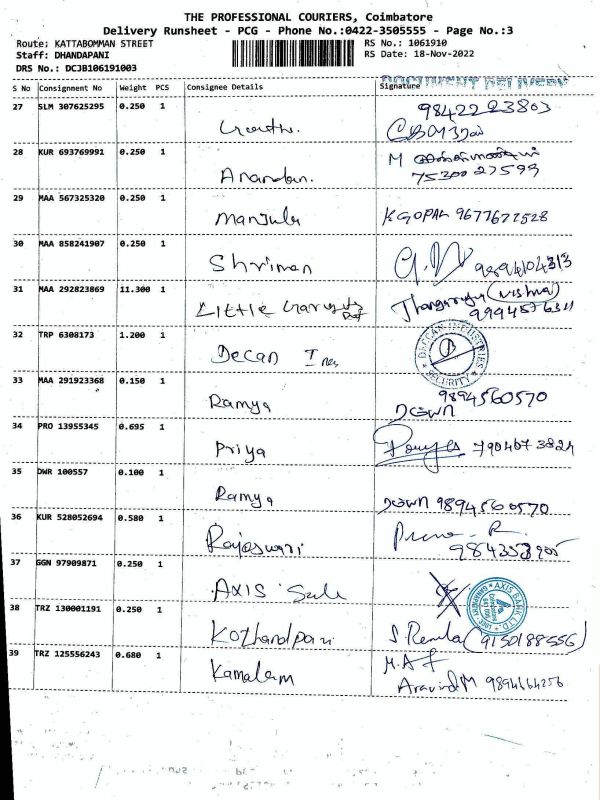 THE PROFESSIONAL COURIERS, Coimbatore
Delivery Runsheet - PCG - Phone No.:0422-3505555 - Page No.:3
Route: KATTABOMMAN STREET RS No.: 1061910
Staff: DHANDAPANI RS Date: 18-Nov-2022
DRS No.: DCJB106191003
DOCUMENT DELIVERY
S No Consignment No Weight PCS Consignee Details Signature
27 SLM 307625295 0.250 1 9842223803
28 KUR 693769991 0.250 1 Anandan. M
7530027599
29 MAA 567325320 0.250 1 Manjula K GOPAL 9677677528
30 MAA 858241907 0.250 1 Shriman 9894104313
31 MAA 292823869 11.300 1 Little (Vishva)
9994576311
32 TRP 6308173 1.200 1 Decan DECCAN INDUSTRIES
SECURITY
33 MAA 291923368 0.150 1 Ramya 9894560570
34 PRO 13955345 0.695 1 Priya 7904673824
35 DWR 100557 0.100 1 Ramya 9894560570
36 KUR 528052694 0.580 1 Rajeswari
37 GGN 97909871 0.250 1 AXIS AXIS BANK LTD.
38 TRZ 130001191 0.250 1 Kothandpani S. Remla (9150188556)
39 TRZ 125556243 0.680 1 Kamalam
Aravind.M 9894664256